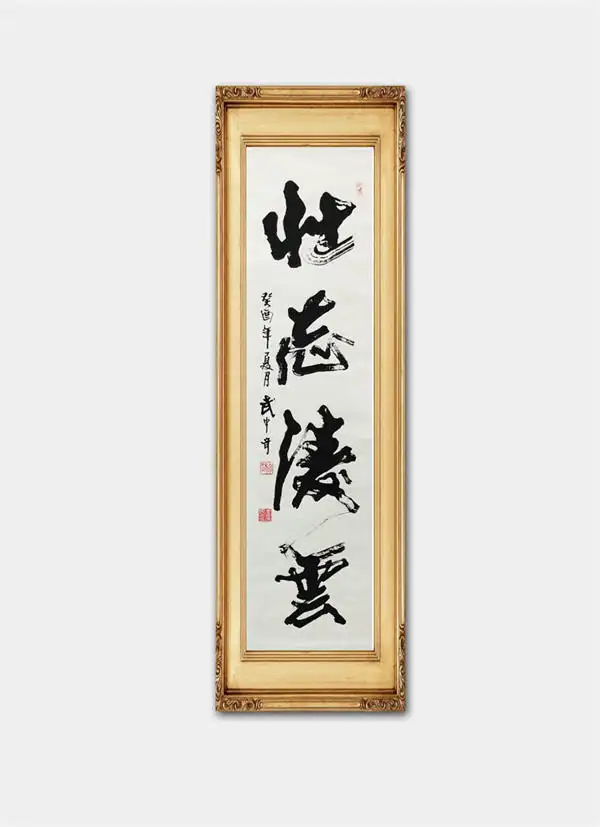 壮志凌雲
癸酉年夏月武中奇